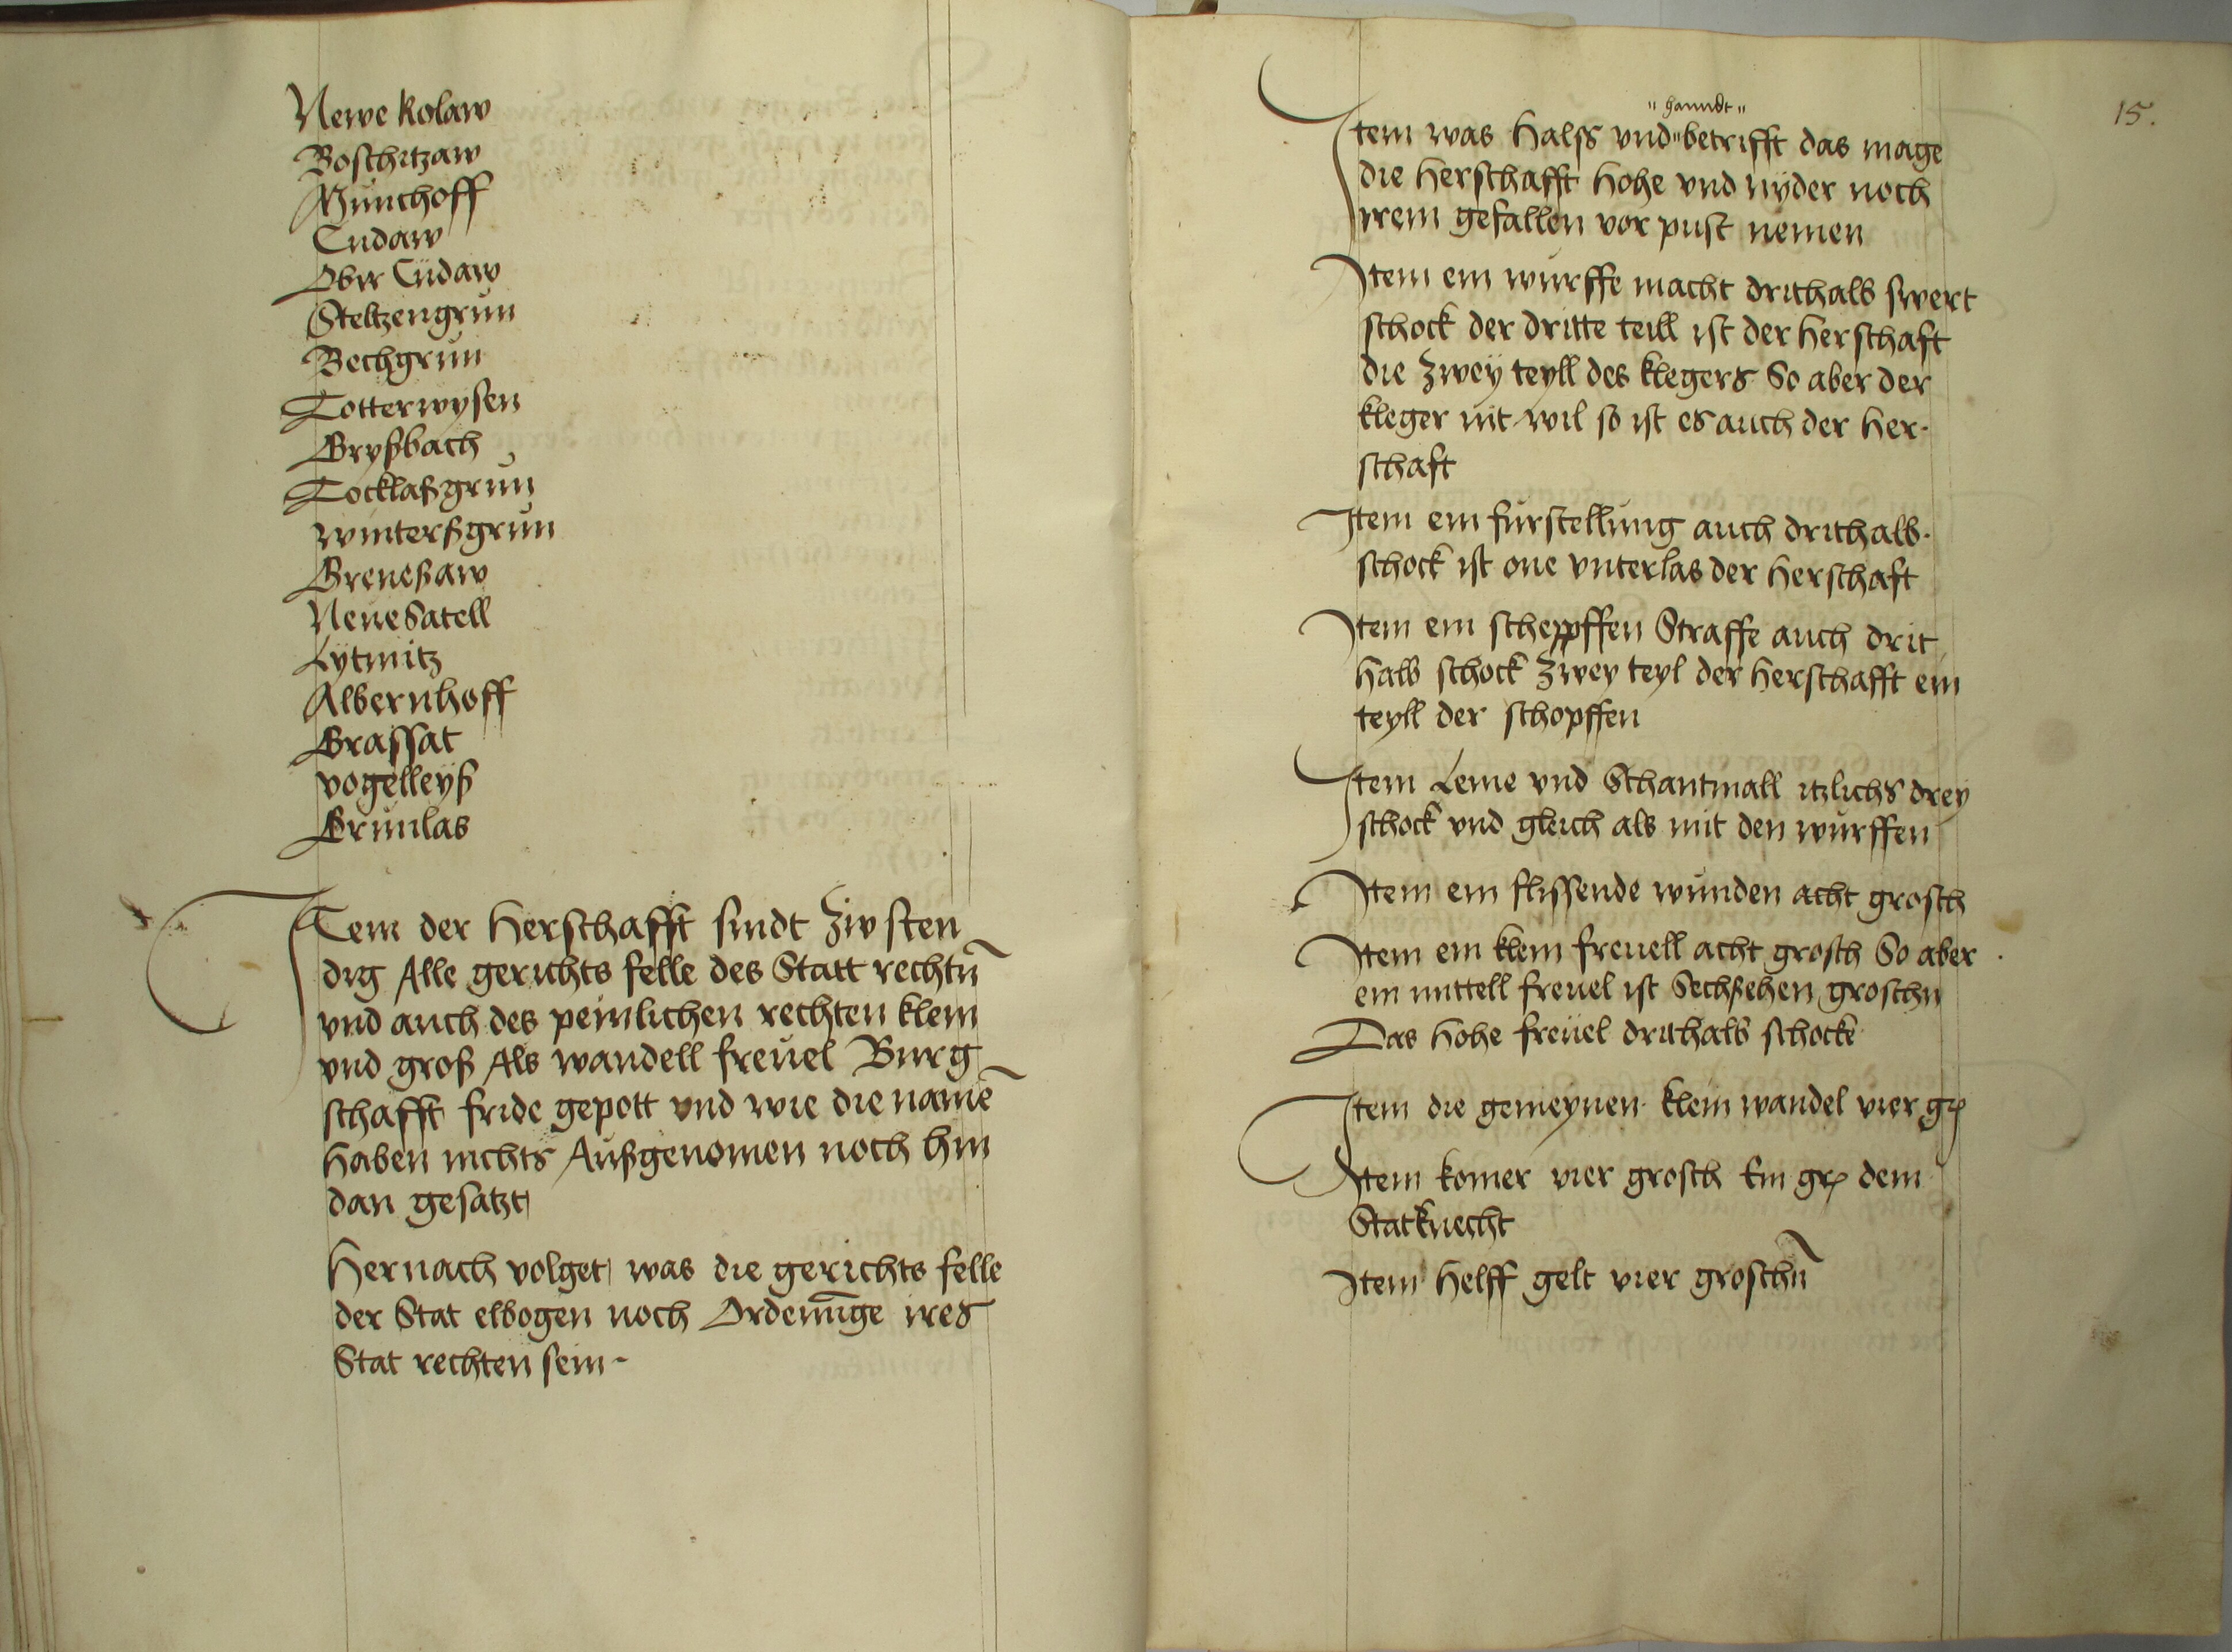 Newe Kolaw
Boschitzaw
Münchoff
Cudaw
Ober Cüdaw
Steltzengrün
Bechgrün
Totterwysen
Gryßbach
Tocklaßgrün
Wintersßgrün
Greneßaw
Neue Satell
Lytmitz
Albernhoff
Grassat
vogelleyß
Grünlas
Item der Herschafft sindt Zw sten
dig Alle gerichts felle des Statt rechtn̄
vnd auch des peinlichen rechten klein
vnd groß Als wandell freuel Burg
schafft fride gepott vnd wie die namē
Haben nichts Außgenomen noch hin
dan gesatzt
Hernach volget was die gerichts felle
der Stat elbogen noch Ordenūge ires
Stat rechten sein -
15.
"hanndt"
Item was Halss vnd "betrifft das mage
die Herschafft Hohe vnd nyder noch
irem gefallen vor pust nemen
Item ein würffe macht drithalb swert
schock der dritte teill ist der Herschaft
die Zwey teyll des klegers So aber der
kleger nit wil so ist es auch der Her-
schaft
Item ein fürstellüng auch drithalb
schock ist one vnterlas der Herschaft
Item ein scheppffen Straffe auch drit
halb schock Zwey teyl der Herschafft ein
teyll der schopffen
Item Leme vnd Schantmall itzlichs drey
schock vnd gleich als mit den würffen
Item ein flissende wünden acht grosch
Item ein klein freuell acht grosch So aber
ein mittell freuel ist Sechßehen groschn
Das Hohe freüel drithalb schock
Item die gemeynen klein wandel vier gr
Item komer vier grosch Ein gr dem
Statknecht
Item Helff gelt vier groschn̄